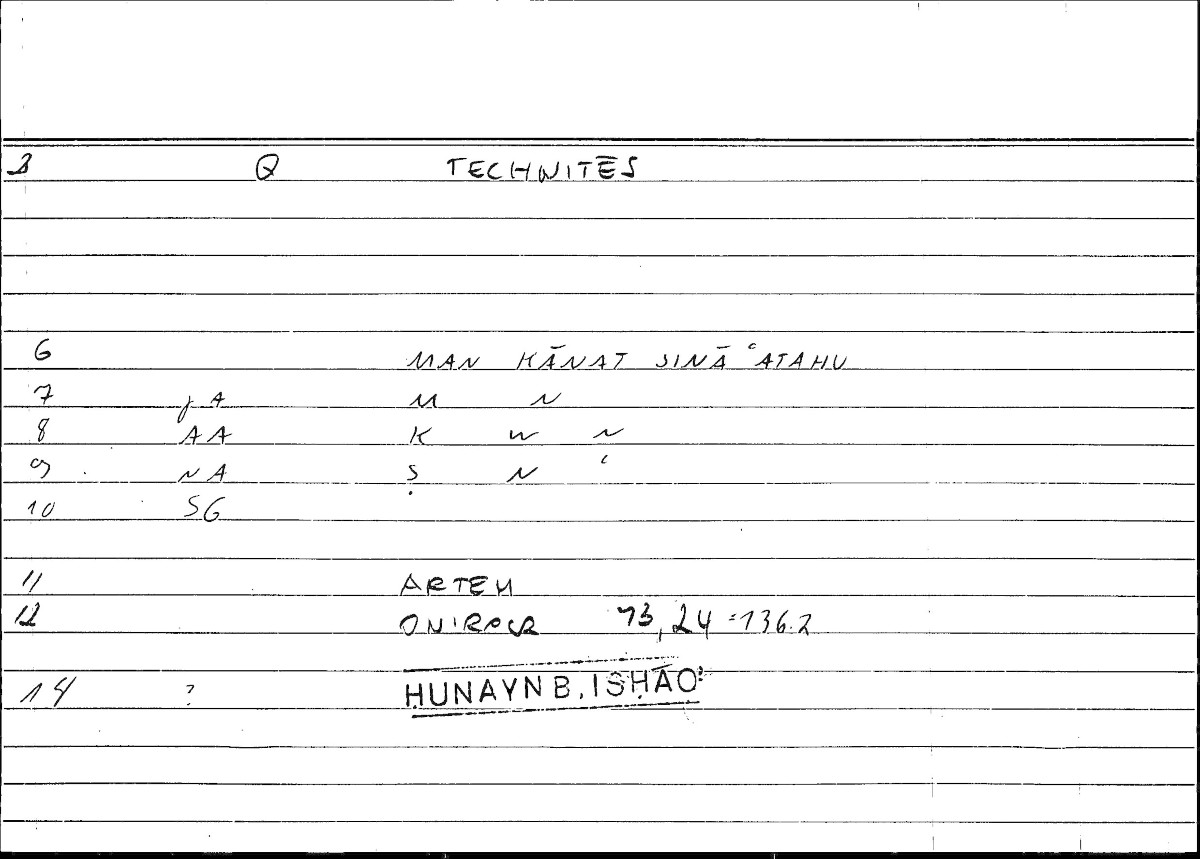 3 Q TECHNITĒS
6 MAN KĀNAT ṢINĀʿATAHU
7 JA M N
8 AA K W N
9 NA Ṣ N ʿ
10 SG
11 ARTEM
12 ONIROCR 73,24 = 136.2
14 ? ḤUNAYN B. ISḤĀQ?